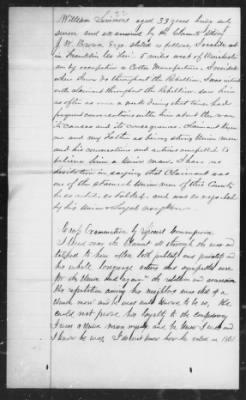 William Simmons aged 33 years being duly
sworn and examined by the Claimants Atty
J. W. Brown Esqr. states as follows, I reside at
in Franklin Co Tenn 5 miles west of Winchester
by occupation a Cotton Manufacturer, I resided
when I now do throughout the Rebellion, I was intimate
with claimant throughout the Rebellion saw him
as often as once a week during that time had
frequent conversations with him about the war
its causes and its consequences. Claimant knew
me and my Father as being strong Union men
and his conversations and actions compelled to
believe him a Union man, I have no
hesitation in saying that Claimant was
one of the staunch Union men of this County
he so acted, so talked, and was so regarded
by his Union & Loyal neighbors
Cross Examination by Special Commissioner
I lived near the Claimant all through the war and
talked to him often both publicly and privately and in
his whole language actions that sympathized were
for the Union and against the rebellion and secession
His reputation among his neighbors was that of a
Union man and he was well known to be so. He
could not prove his loyalty to the confederacy
I was a Union man myself and he knew I was and
I know he was. I do not know how he voted in 1861